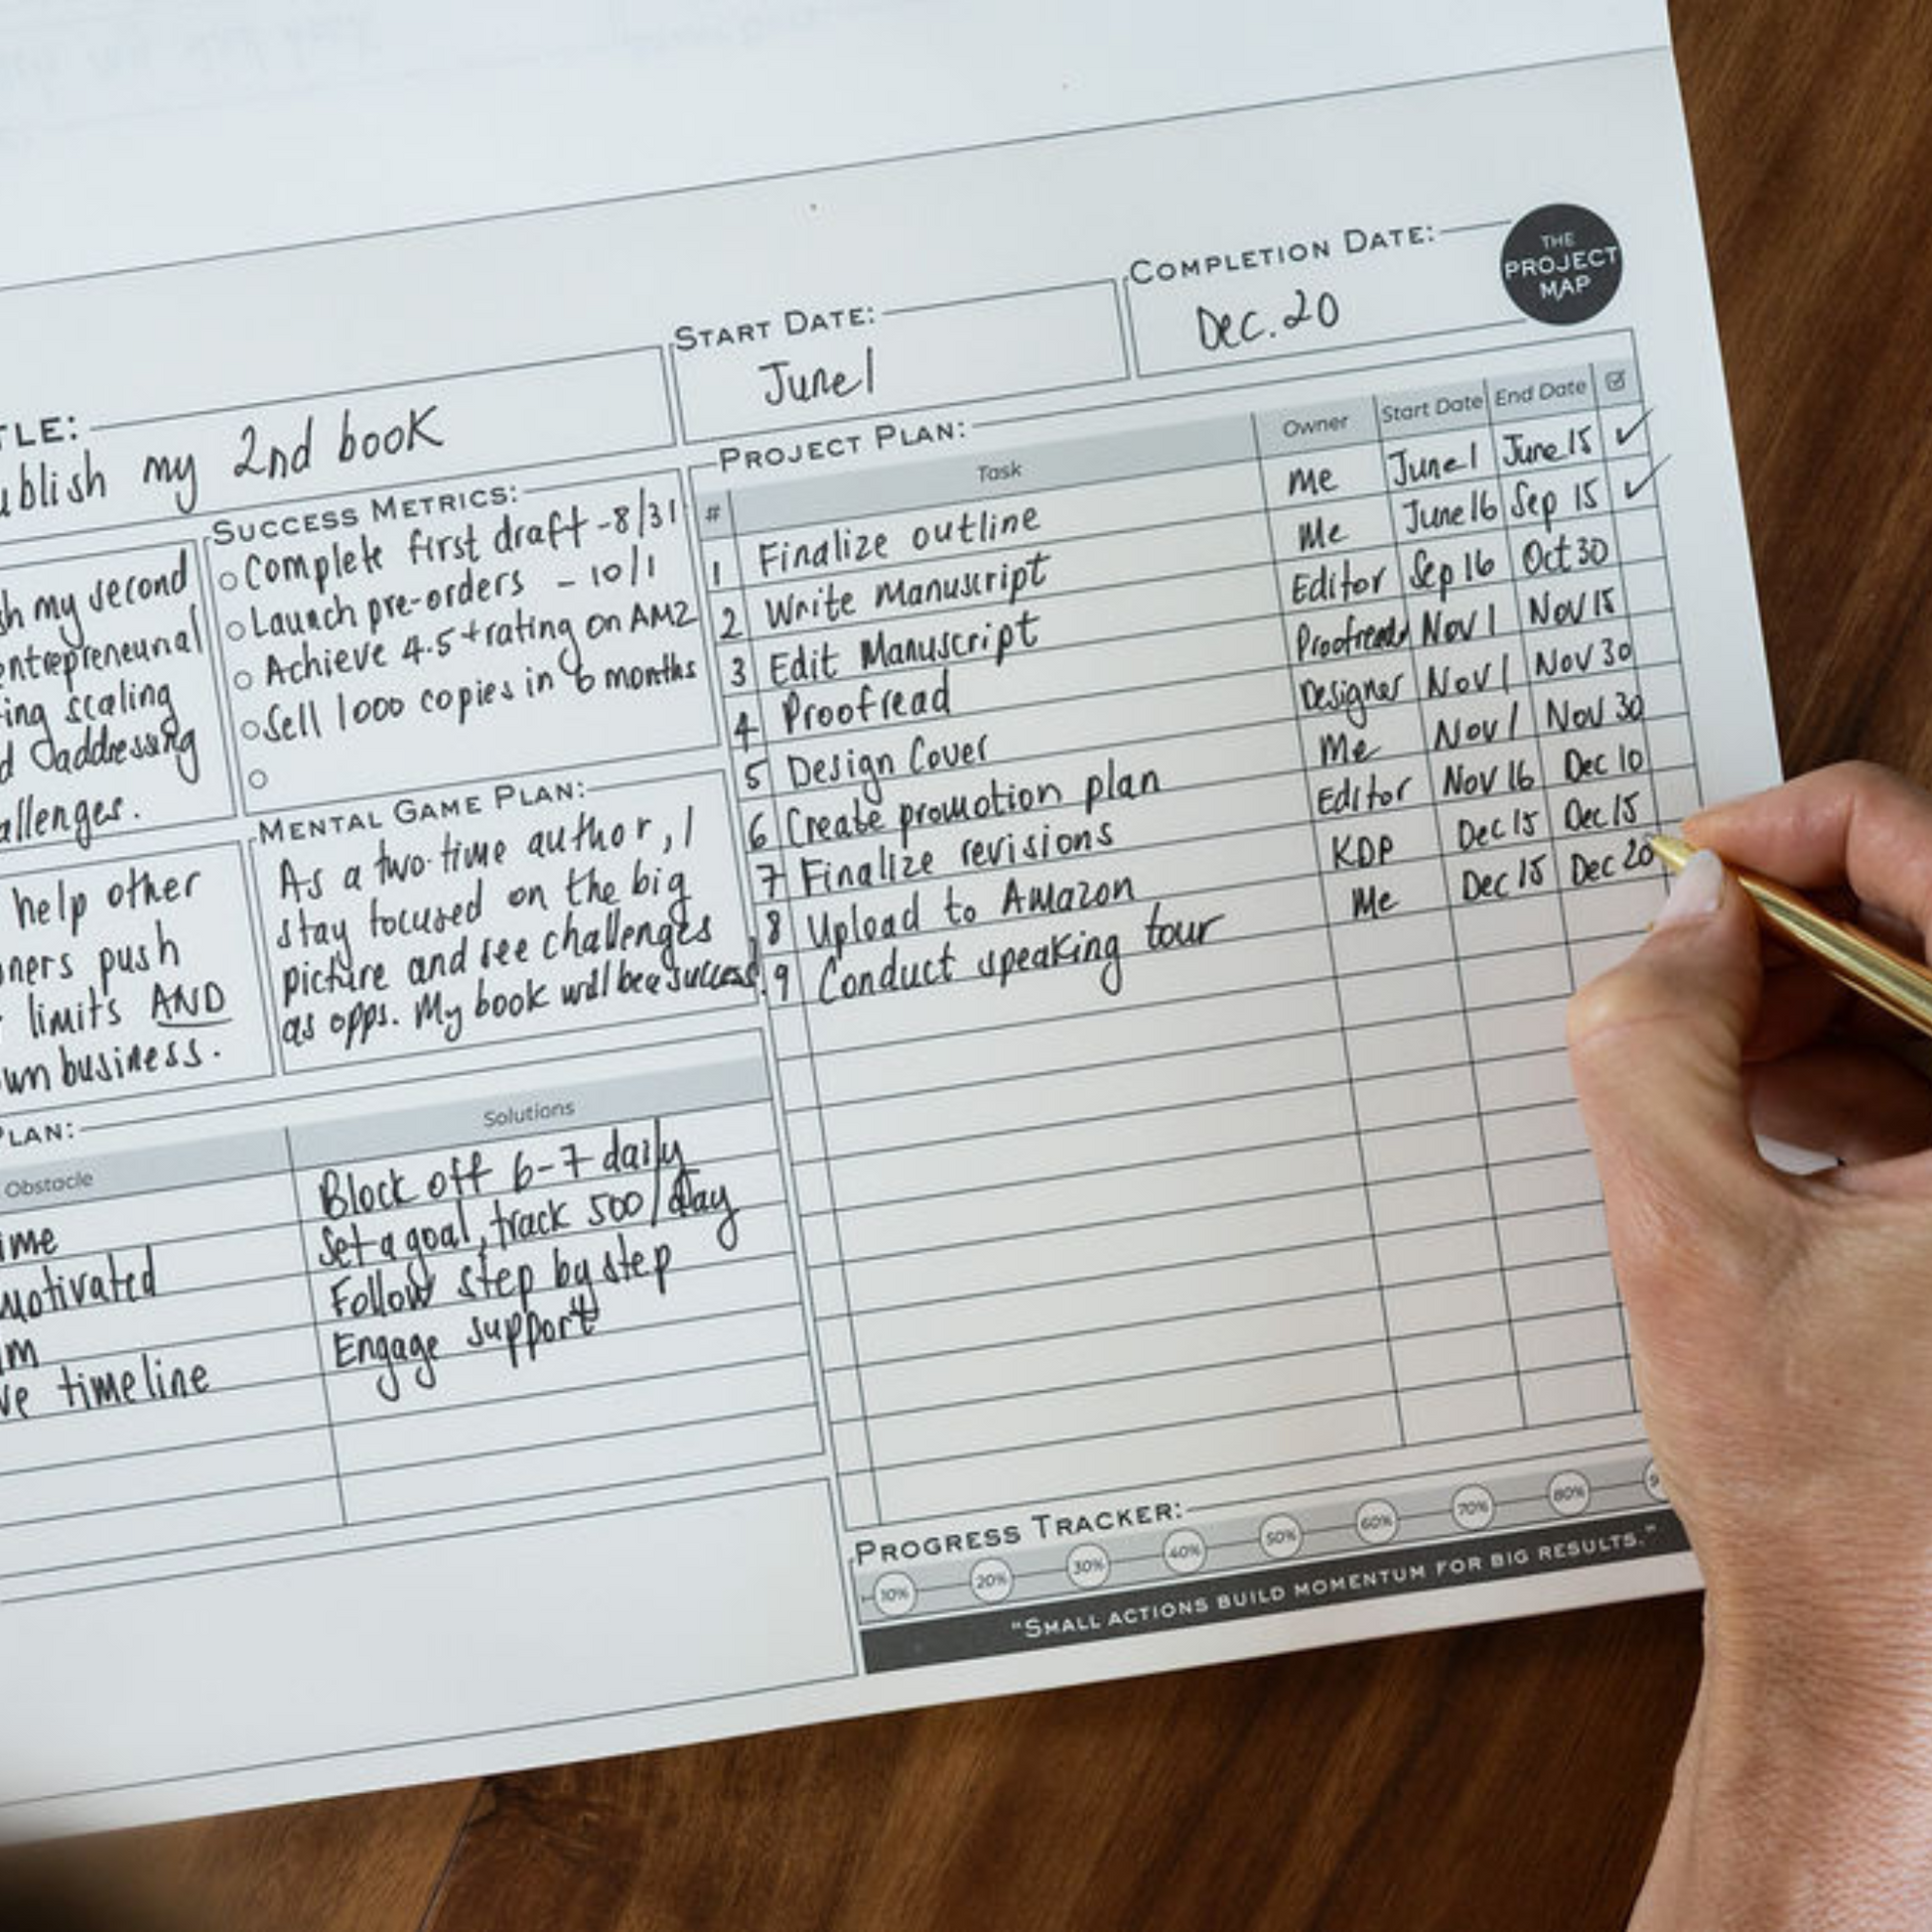 START DATE:
June 1
COMPLETION DATE:
Dec. 20
THE
PROJECT
MAP
my 2nd book
SUCCESS METRICS:
Complete first draft - 8/31
Launch pre-orders - 10/1
Achieve 4.5+ rating on AMZ
Sell 1000 copies in 6 months
my second
scaling
MENTAL GAME PLAN:
As a two-time author, I
stay focused on the big
picture and see challenges
as opps. My book will be a success!
help other
push
limits AND
business.
Obstacle Solutions
Block off 6-7 daily
Set a goal, track 500/day
Follow step by step
timeline Engage support
PROJECT PLAN:
# Task Owner Start Date End Date
1 Finalize outline Me June 1 June 15 ✓
2 Write Manuscript Me June 16 Sep 15 ✓
3 Edit Manuscript Editor Sep 16 Oct 30
4 Proofread Nov 1 Nov 15
5 Design Cover Designer Nov 1 Nov 30
6 Create promotion plan Me Nov 1 Nov 30
7 Finalize revisions Editor Nov 16 Dec 10
8 Upload to Amazon KDP Dec 15 Dec 15
9 Conduct speaking tour Me Dec 15 Dec 20
PROGRESS TRACKER:
10% 20% 30% 40% 50% 60% 70% 80%
"SMALL ACTIONS BUILD MOMENTUM FOR BIG RESULTS."